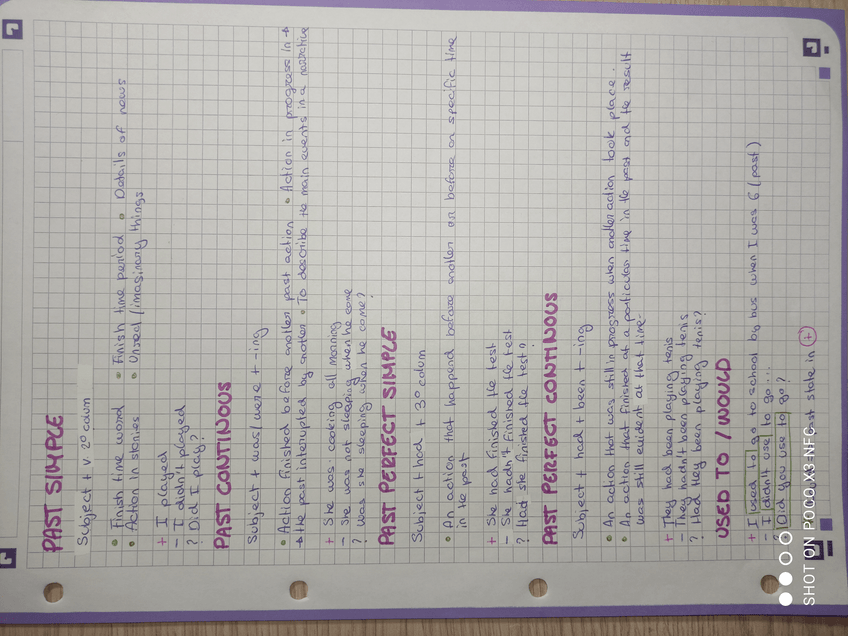 PAST SIMPLE
Subject + v. 2º colum
• Finish time word • Finish time period • Details of news
• Action in stories • Unreal/imaginary things
+ I played
- I didn't played
? Did I play?
PAST CONTINUOUS
Subject + was/were + -ing
• Action finished before another past action • Action in progress in →
→ the past interrupted by another • To describe the main events in a narrative
+ She was cooking all morning
- She was not sleeping when he come
? Was she sleeping when he come?
PAST PERFECT SIMPLE
Subject + had + 3º colum
• An action that happend before another or before an specific time
in the past
+ She had finished the test
- She hadn't finished the test
? Had she finished the test?
PAST PERFECT CONTINUOUS
Subject + had + been + -ing
• An action that was still in progress when another action took place.
• An action that finished at a particular time in the past and the result
was still evident at that time.
+ They had been playing tenis
- They hadn't been playing tenis
? Had they been playing tenis?
USED TO / WOULD
+ I used to go to school by bus when I was 6 (past)
- I didn't use to go...
? Did you use to go?
past state in +
SHOT ON POCO X3 NFC